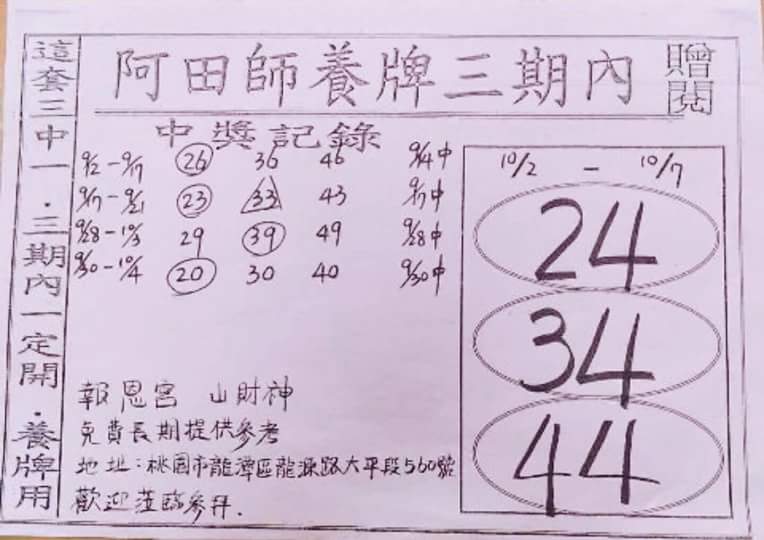 阿田師養牌三期內
贈閱
這套三中一．三期內一定開．養牌用
中獎記錄
9/12-9/17 26 36 46 9/14中
9/17-9/21 23 33 43 9/17中
9/28-10/3 29 39 49 9/28中
9/30-10/4 20 30 40 9/30中
10/2 - 10/7
24
34
44
報恩宮 山財神
免費長期提供參考
地址:桃園市龍潭區龍源路大平段560號
歡迎蒞臨參拜.